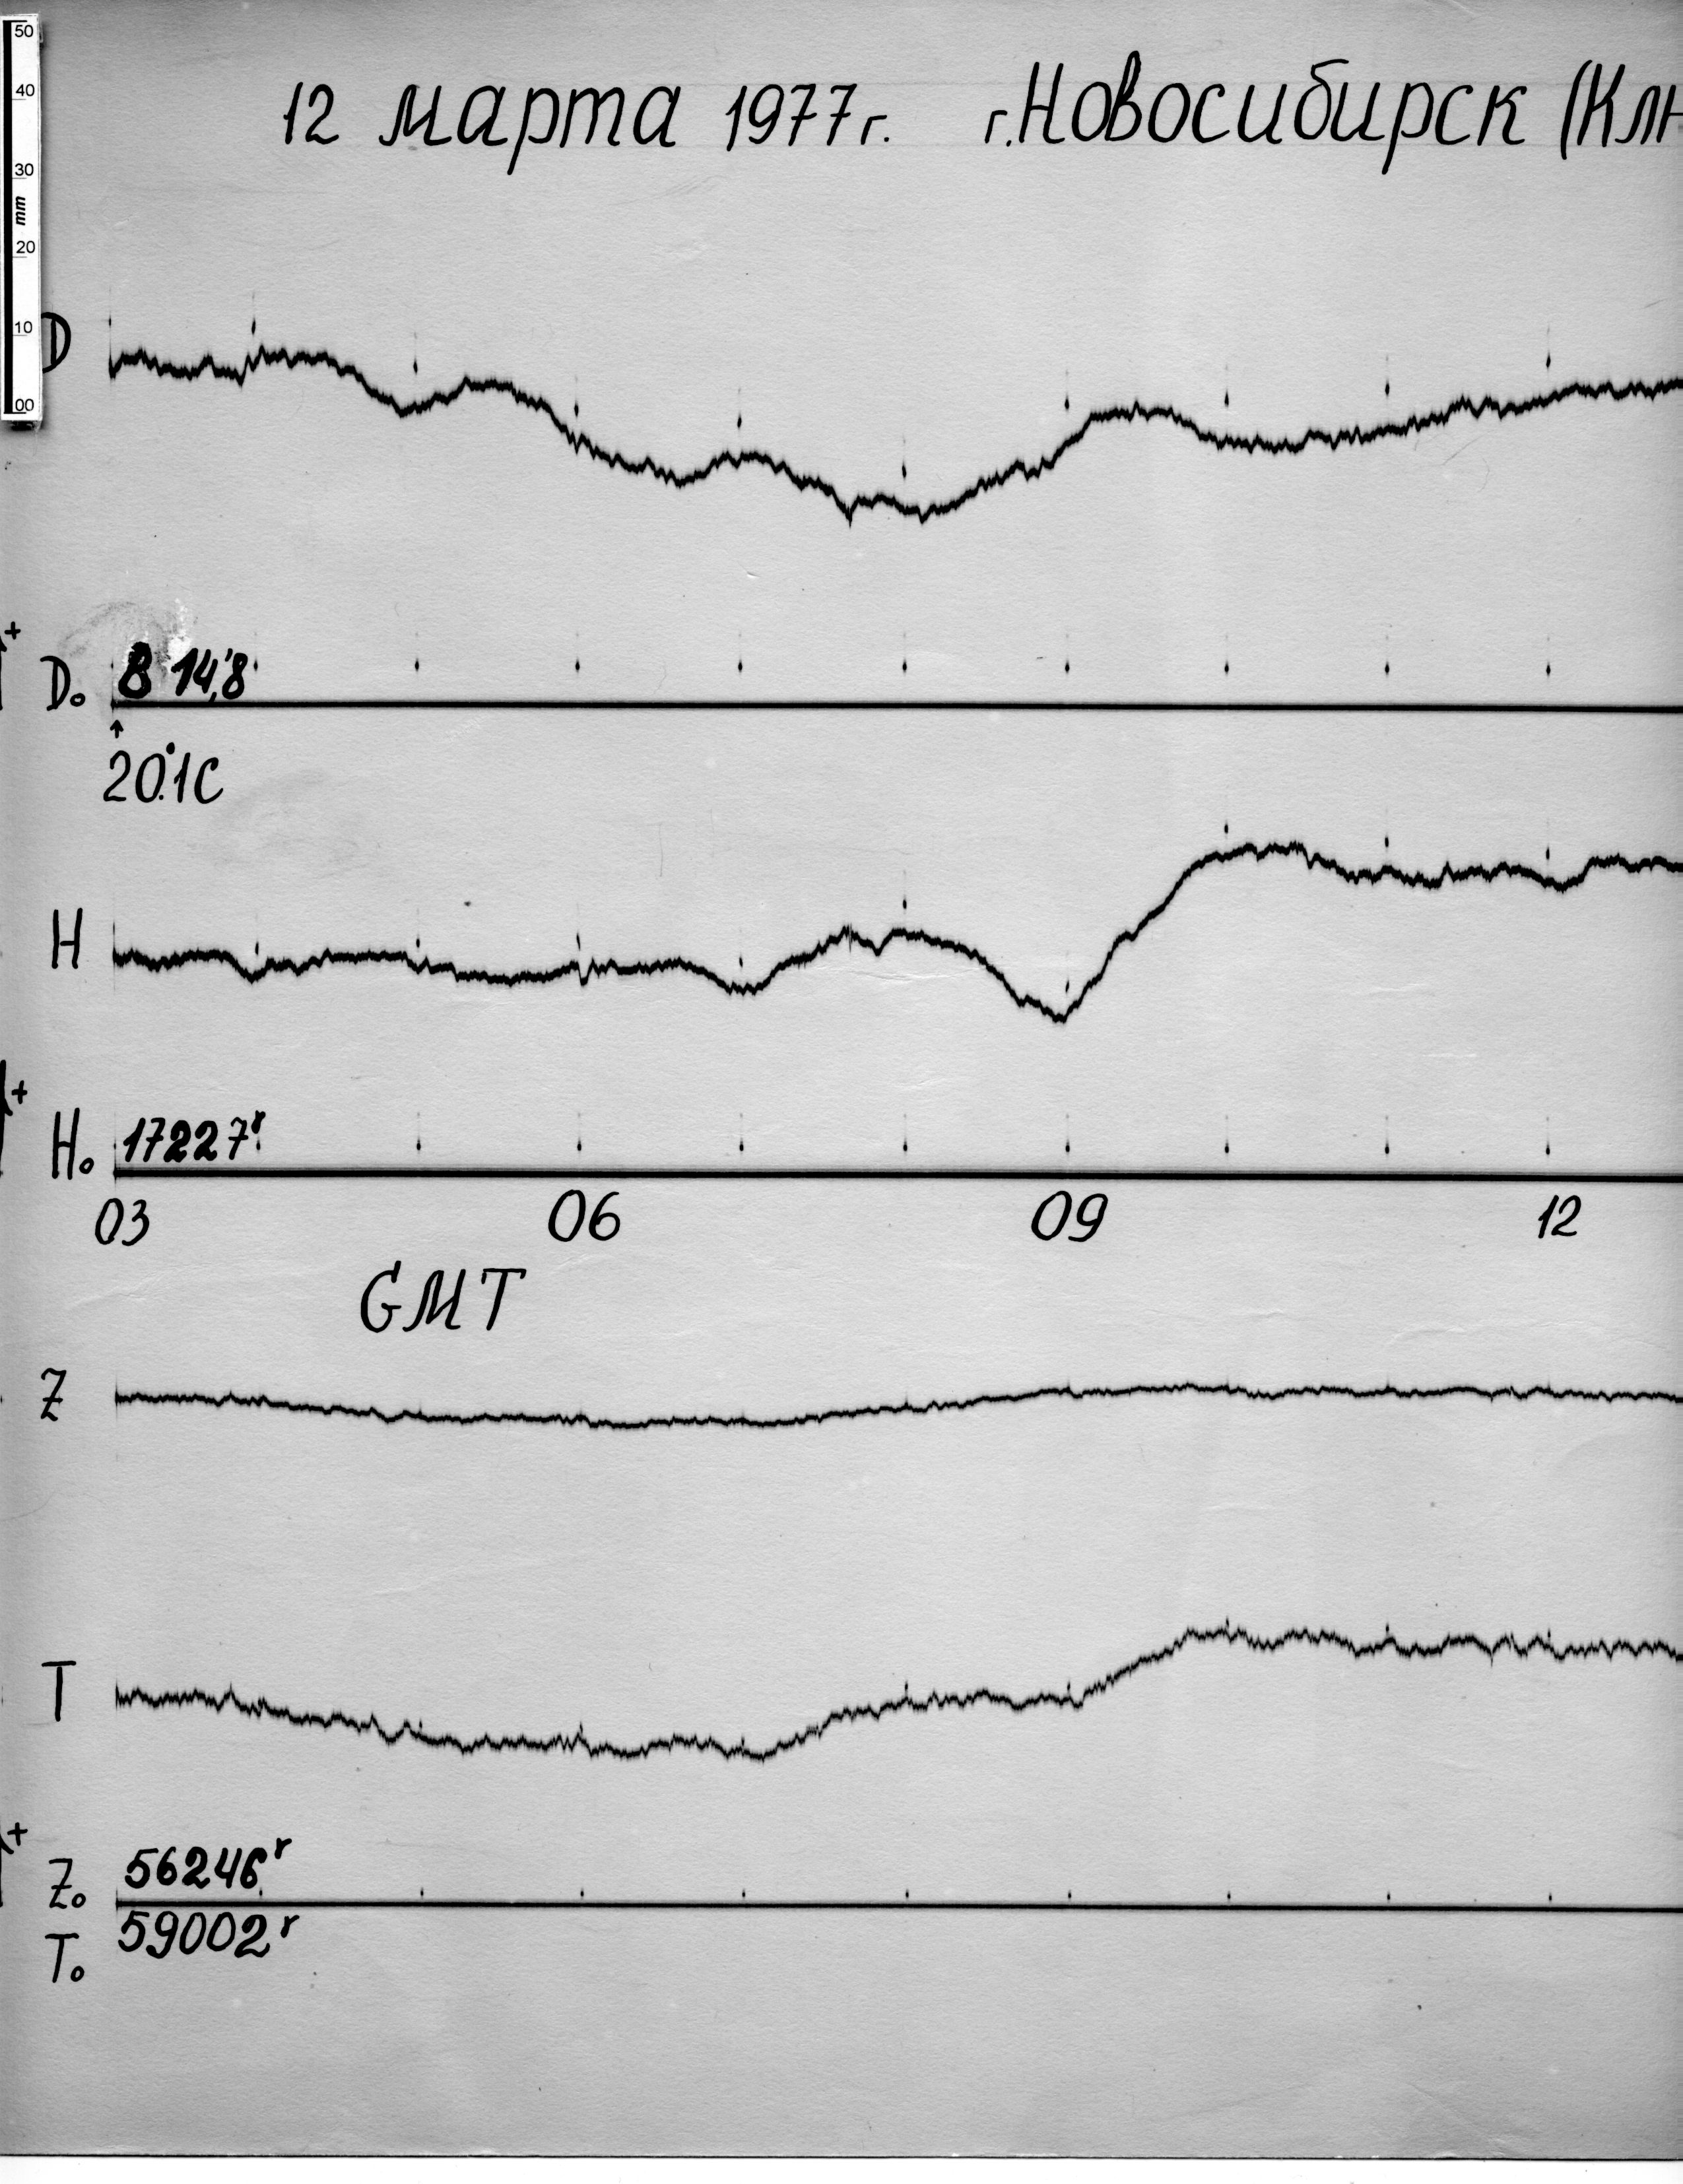 50
40
30
mm
20
10
00
12 марта 1977г. г.Новосибирск (Клю
D
+
D₀ 8°14,'8
20.°1C
H
+
H₀ 17227ᵞ
03 06 09 12
GMT
Z
T
+
Z₀ 56246ᵞ
T₀ 59002ᵞ